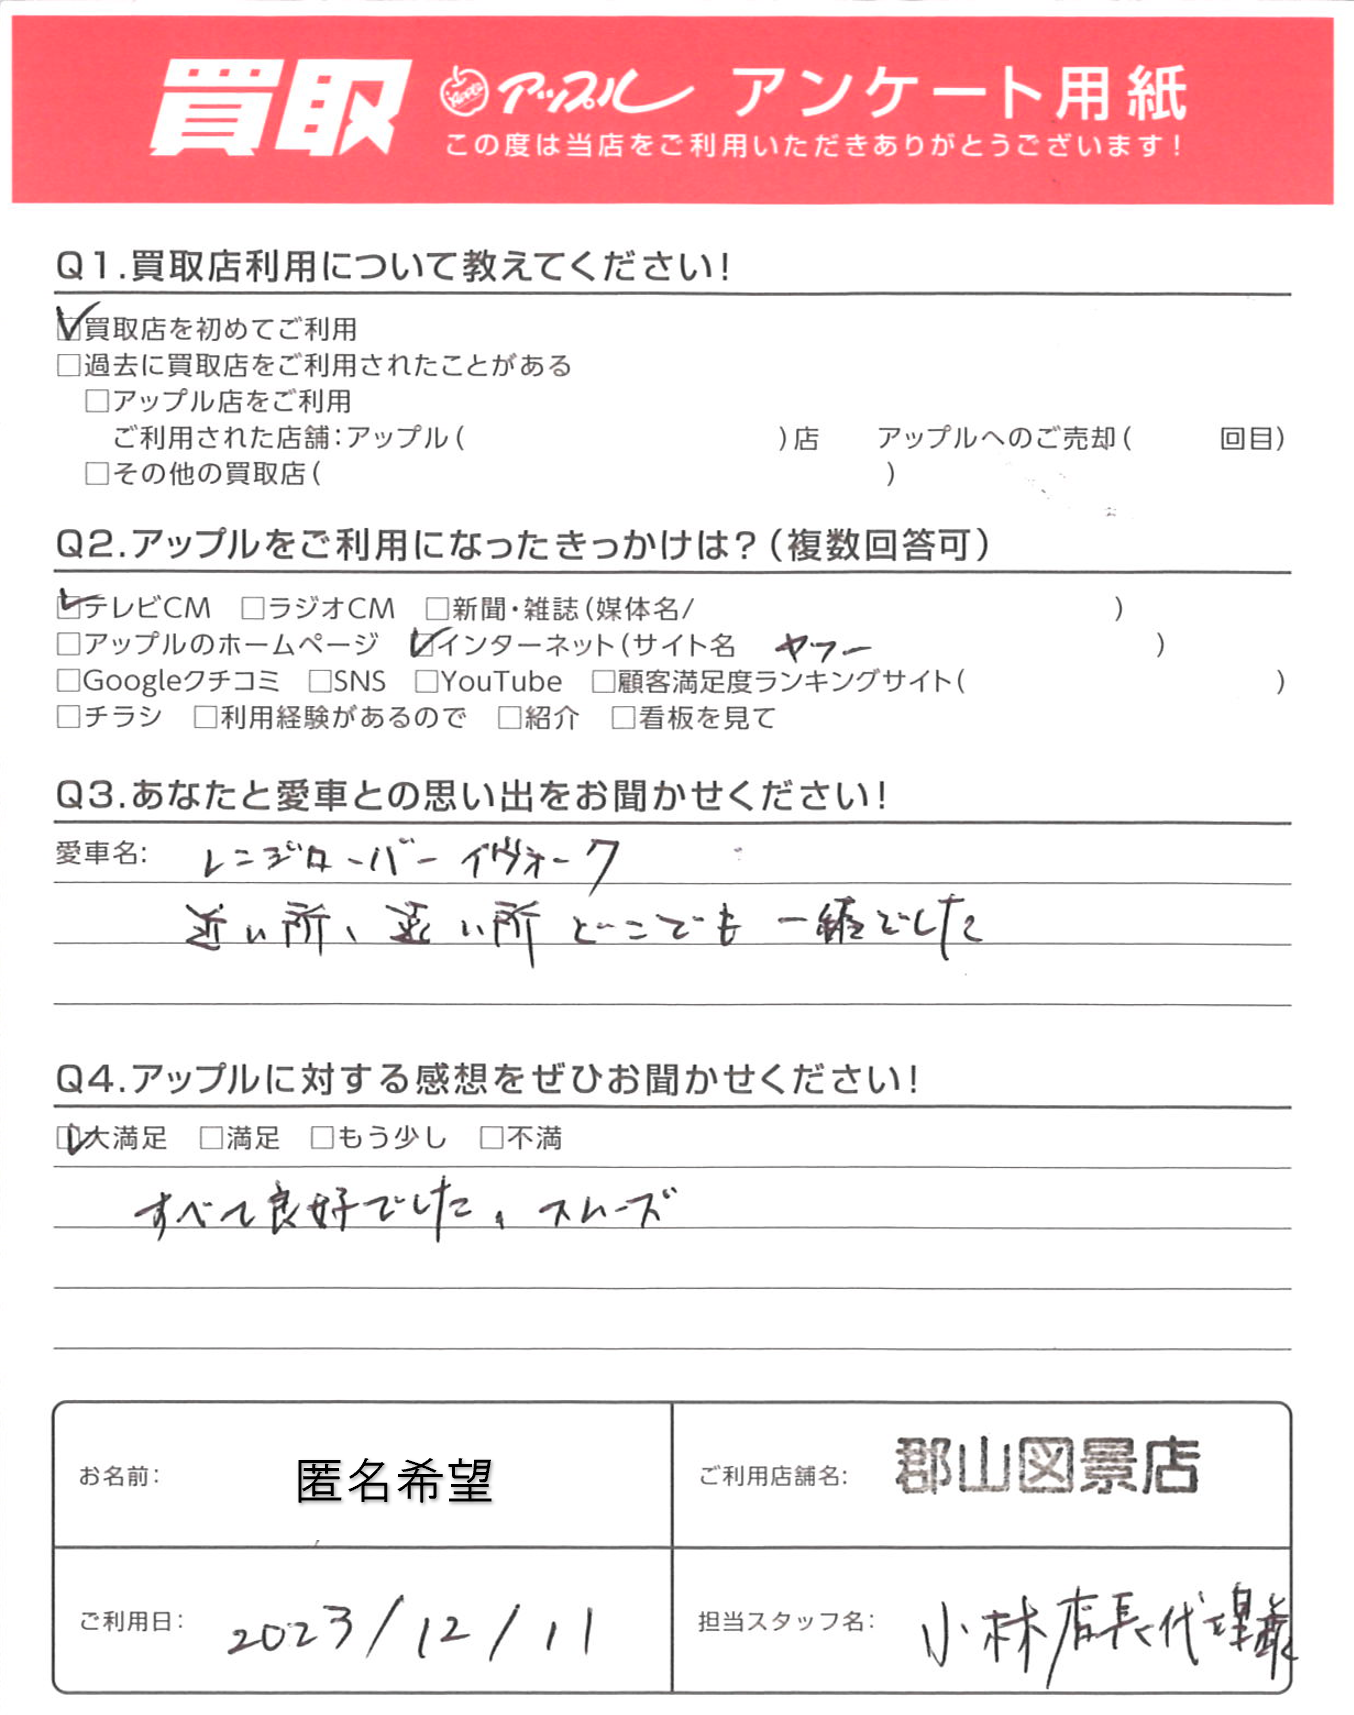 買取 Apple アップル アンケート用紙
この度は当店をご利用いただきありがとうございます!
Q1.買取店利用について教えてください!
☑買取店を初めてご利用
□過去に買取店をご利用されたことがある
□アップル店をご利用
ご利用された店舗:アップル( )店 アップルへのご売却( 回目)
□その他の買取店( )
Q2.アップルをご利用になったきっかけは?(複数回答可)
☑テレビCM □ラジオCM □新聞・雑誌(媒体名/ )
□アップルのホームページ ☑インターネット(サイト名 ヤフー )
□Googleクチコミ □SNS □YouTube □顧客満足度ランキングサイト( )
□チラシ □利用経験があるので □紹介 □看板を見て
Q3.あなたと愛車との思い出をお聞かせください!
愛車名: レンジローバー イヴォーク
近い所、遠い所 どこでも 一緒でした
Q4.アップルに対する感想をぜひお聞かせください!
☑大満足 □満足 □もう少し □不満
すべて良好でした。スムーズ
お名前: 匿名希望
ご利用店舗名: 郡山図景店
ご利用日: 2023/12/11
担当スタッフ名: 小林店長代理様